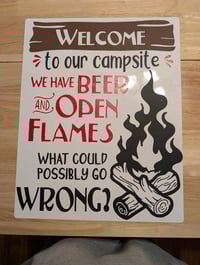 WELCOME
to our campsite
WE HAVE BEER
AND OPEN
FLAMES
WHAT COULD
POSSIBLY GO
WRONG?